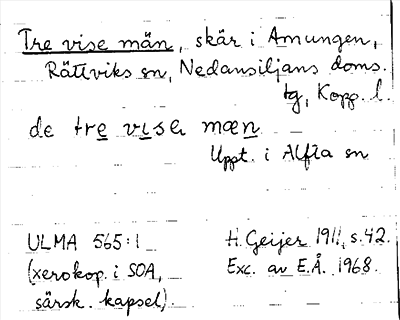 Tre vise män, skär i Amungen,
Rättviks sn, Nedansiljans doms.
tg, Kopp. l.
de tre visa mæn
Uppt. i Alfta sn
ULMA 565:1
(xerokop. i SOA,
särsk. kapsel).
H. Geijer 1911, s. 42.
Exc. av E.Å. 1968.